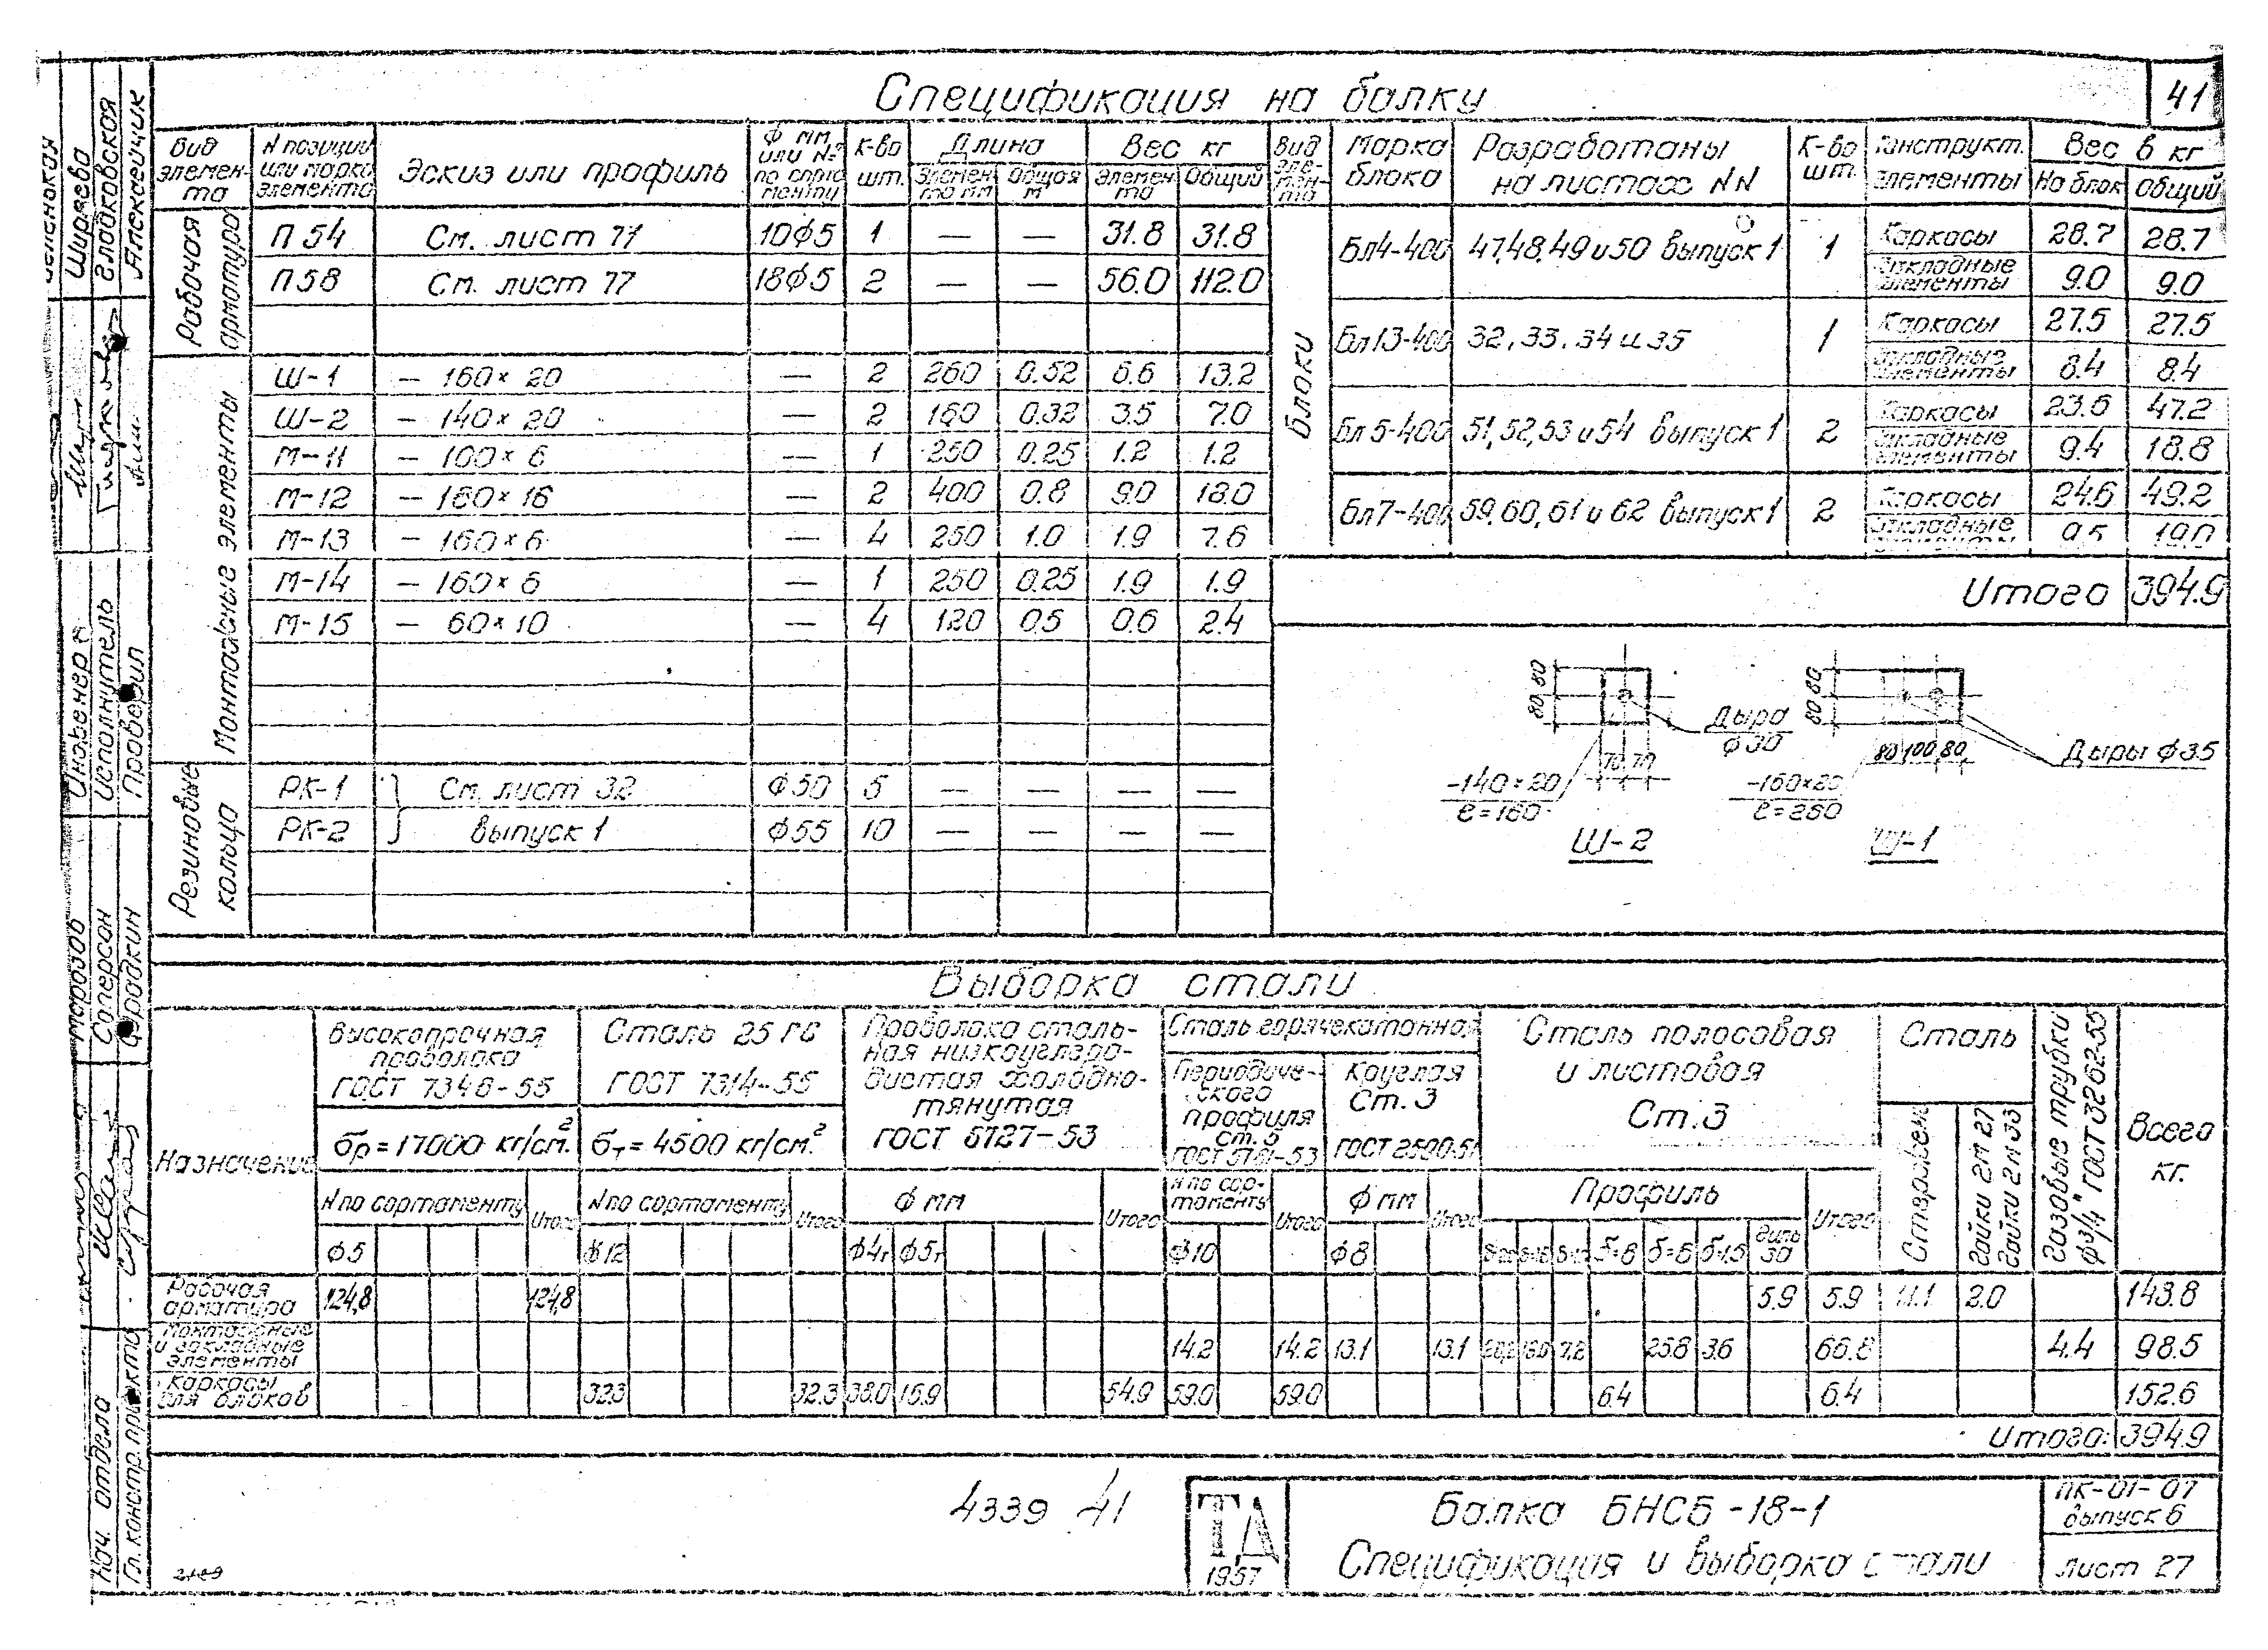 Спецификация на балку
41
Вид элемен-та
N позиции или марка элемента
Эскиз или профиль
Ф мм или № по сорта менту
К-во шт.
Длина
Элемен та мм
Общая м
Вес кг
Элемен та
Общий
Вид эле-мен-та
Марка блока
Разработаны на листах NN
К-во шт.
Конструкт. элементы
Вес в кг
На блок
Общий
Рабочая арматура
П 54 См. лист 77 10ф5 1 — — 31.8 31.8
П 58 См. лист 77 18ф5 2 — — 56.0 112.0
Монтажные элементы
Ш-1 — 160×20 — 2 260 0.52 6.6 13.2
Ш-2 — 140×20 — 2 160 0.32 3.5 7.0
М-11 — 100×6 — 1 250 0.25 1.2 1.2
М-12 — 180×16 — 2 400 0.8 9.0 18.0
М-13 — 160×6 — 4 250 1.0 1.9 7.6
М-14 — 160×6 — 1 250 0.25 1.9 1.9
М-15 — 60×10 — 4 120 0.5 0.6 2.4
Резиновые кольца
РК-1 См. лист 32 Ф50 5 — — — —
РК-2 выпуск 1 Ф55 10 — — — —
Блоки
Бл4-400 47,48,49 и 50 выпуск 1 1 Каркасы 28.7 28.7
Закладные элементы 9.0 9.0
Бл13-400 32, 33, 34 и 35 1 Каркасы 27.5 27.5
Закладные элементы 8.4 8.4
Бл5-400 51,52,53 и 54 выпуск 1 2 Каркасы 23.6 47.2
Закладные элементы 9.4 18.8
Бл7-400 59,60,61 и 62 выпуск 1 2 Каркасы 24.6 49.2
Закладные элементы 9.5 19.0
Итого 394.9
80 80
Дыра
Ф30
70 70
-140×20
ℓ=160
Ш-2
80 80
80 100 80
Дыры Ф35
-160×20
ℓ=260
Ш-1
Выборка стали
Назначение
Высокопрочная проволока
ГОСТ 7348-55
бр=17000 кг/см.²
N по сортаменту
Итого
ф5
Сталь 25 ГС
ГОСТ 7314-55
бт=4500 кг/см.²
N по сортаменту
Итого
ф12
Проволока сталь-
ная низкоуглеро-
дистая холодно-
тянутая
ГОСТ 6727-53
ф мм
Итого
ф4т ф5т
Сталь горячекатанная
Периодиче-
ского
профиля
ст. 5
ГОСТ 5781-53
N по сор-
таменту
Итого
ф10
Круглая
Ст. 3
ГОСТ 2590-51
ф мм
Итого
ф8
Сталь полосовая
и листовая
Ст. 3
Профиль
Итого
б=8 б=6
Сталь
Стержен
Гайки 2м 27
Гайки 2м 33
Газовые трубки
ф3/4" ГОСТ 3262-55
Всего
кг.
Рабочая арматура 124,8 124,8 5.9 5.9 11.1 2.0 143.8
Монтажные и закладные элементы 14.2 14.2 13.1 13.1 7.2 25.8 3.6 66.8 4.4 98.5
Каркасы для блоков 32.3 32.3 38.0 16.9 54.9 59.0 59.0 6.4 6.4 152.6
Итого: 394.9
4339 41
ТД
1957
Балка БНСБ-18-1
Спецификация и выборка стали
ПК-01-07
выпуск 6
Лист 27
Ширяева
Гладковская
Алексейчик
Инженер
Исполнитель
Проверил
Морозов
Соперсон
Нач. отдела
Гл. констр. проекта